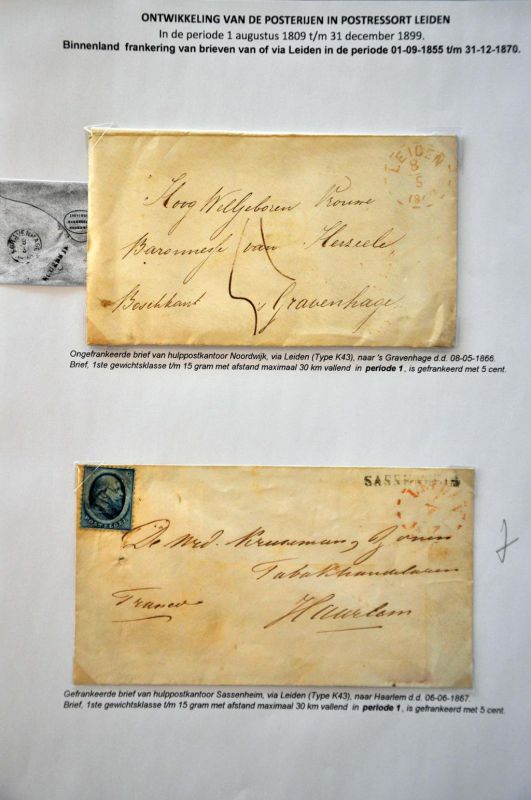 ONTWIKKELING VAN DE POSTERIJEN IN POSTRESSORT LEIDEN
In de periode 1 augustus 1809 t/m 31 december 1899.
Binnenland frankering van brieven van of via Leiden in de periode 01-09-1855 t/m 31-12-1870.
LEIDEN
8
5
Hoog Welgeboren Vrouwe
Baronnesse van Herzeele,
Boschkant 's Gravenhage
5
'S GRAVENHAGE
Ongefrankeerde brief van hulppostkantoor Noordwijk, via Leiden (Type K43), naar 's Gravenhage d.d. 08-05-1866.
Brief, 1ste gewichtsklasse t/m 15 gram met afstand maximaal 30 km vallend in periode 1, is gefrankeerd met 5 cent.
POSTZEGEL
SASSENHEIM
De Wed. Kruseman, Zonen
Tabakhandelaren
Franco
Haarlem
Gefrankeerde brief van hulppostkantoor Sassenheim, via Leiden (Type K43), naar Haarlem d.d. 06-06-1867.
Brief, 1ste gewichtsklasse t/m 15 gram met afstand maximaal 30 km vallend in periode 1, is gefrankeerd met 5 cent.